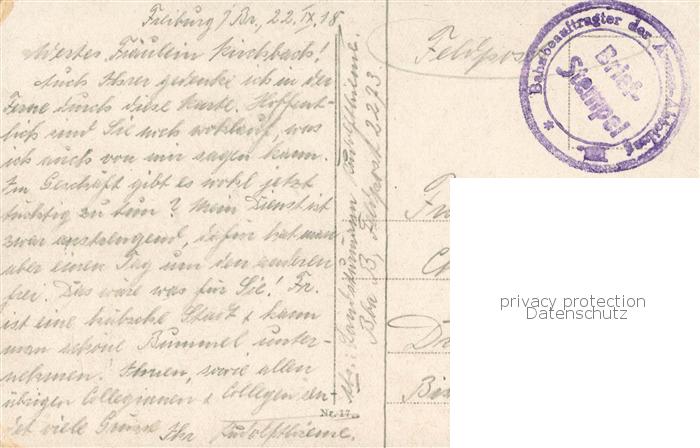 Freiburg i/Br., 22. IX. 18
Wertes Fräulein Kirchbach!
Auch Ihrer gedenke ich in der
Ferne durch diese Karte. Hoffent-
lich sind Sie noch wohlauf, was
ich auch von mir sagen kann.
Im Geschäft gibt es wohl jetzt
tüchtig zu tun? Mein Dienst ist
zwar anstrengend, dafür hat man
aber einen Tag um den anderen
frei. Das wäre was für Sie! Fr.
ist eine hübsche Stadt & kann
man schöne Bummel unter-
nehmen. Ihnen, sowie allen
übrigen Colleginnen & Collegen sen-
det viele Grüsse
Ihr Rudolf Thieme.
Abs.: Landsturmmann Rudolf Thieme.
Feldpost 2273.
Nr. 17
Feldpost
Bahnbeauftragter der
Brief-
Stempel
privacy protection
Datenschutz